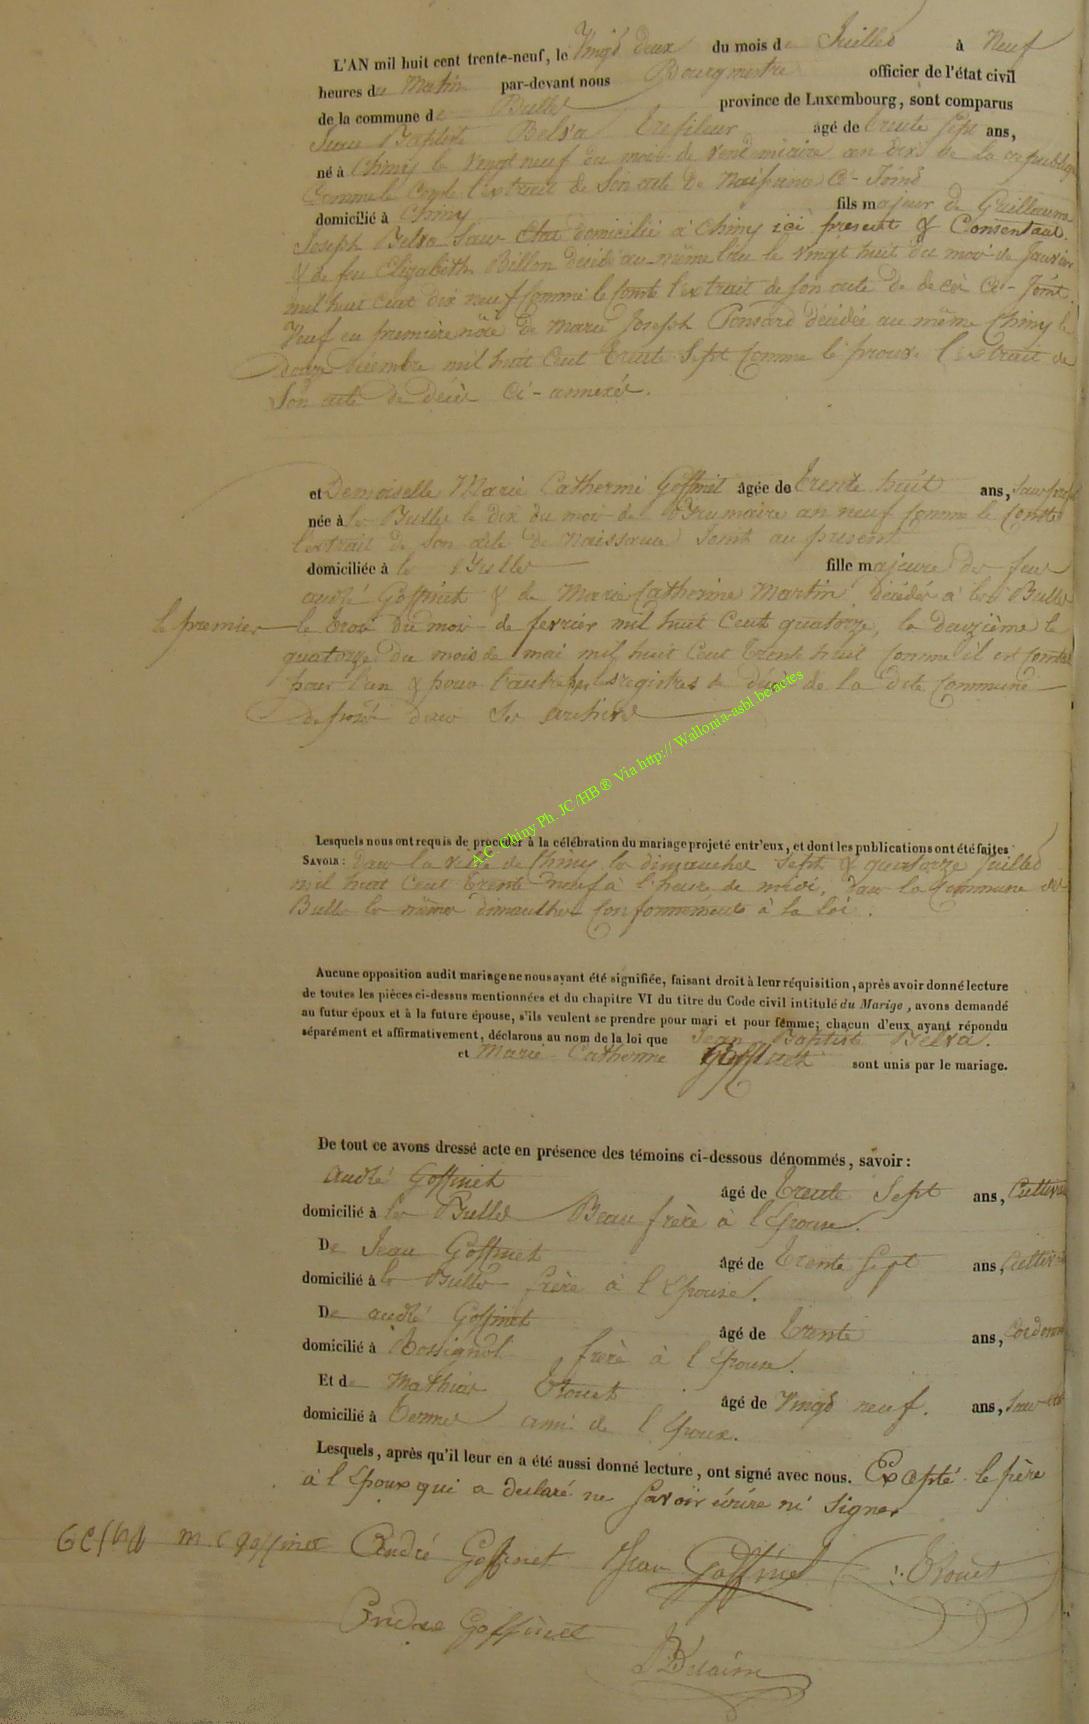 L'AN mil huit cent trente-neuf, le Vingt deux du mois de Juillet à Neuf
heures du Matin par-devant nous Bourgmestre officier de l'état civil
de la commune de Bulles province de Luxembourg, sont comparus
Jean Baptiste Belva âgé de trente sept ans,
né à Chiny le vingt neuf du mois de vendemiaire an dix de la republique
Comme le l'extrait de Son acte de Naissance Ci-Joint
domicilié à Chiny fils majeur de Guillaume
Joseph Belva Sans Etat domicilié à Chiny ici present & Consentant
& de feu Elizabeth Billon décédé au même lieu le vingt huit du mois de Janvier
mil huit cent dix neuf Comme le Conste l'extrait de son acte de décès Ci-Joint.
Veuf en première nôce de Marie Joseph Ponsard décédée au même Chiny le
douze Décembre mil huit Cent trente Sept Comme le prouve l'extrait de
Son acte de Décès Ci-annexés.
et Demoiselle Marie Catherine Goffinet âgée de trente huit ans,
née à les Bulles le dix du mois de Brumaire an neuf Comme le Conste
l'extrait de son acte de Naissance Joint au present
domiciliée à les Bulles fille majeure de feu
andré Goffinet & de Marie Catherine Martin décédés à les Bulles
le premier le trois du mois de fevrier mil huit Cent quatorze, la deuzième le
quatorze du mois de mai mil huit Cent trente huit Comme il est Constaté
pour l'un & pour l'autre par les registres de décès de la dite Commune
déposé dans Ses archives
A.C. Chiny Ph. JC /HB® Via http:// Wallonia-asbl.be/actes
Lesquels nous ont requis de procéder à la célébration du mariage projeté entr'eux, et dont les publications ont été faites
SAVOIR : dans la ville de Chiny les dimanches Sept & quatorze Juillet
mil huit Cent trente neuf à l'heure de midi, dans la Commune des
Bulles les mêmes dimanches Conformément à la loi.
Aucune opposition audit mariage ne nous ayant été signifiée, faisant droit à leur réquisition, après avoir donné lecture
de toutes les pièces ci-dessus mentionnées et du chapitre VI du titre du Code civil intitulé du Marige, avons demandé
au futur époux et à la future épouse, s'ils veulent se prendre pour mari et pour femme; chacun d'eux ayant répondu
séparément et affirmativement, déclarons au nom de la loi que Jean Baptiste Belva.
et Marie Catherine Goffinet sont unis par le mariage.
De tout ce avons dressé acte en présence des témoins ci-dessous dénommés, savoir :
André Goffinet âgé de trente Sept ans, Cultivateur
domicilié à les Bulles Beau frère à l'Epouse.
De Jean Goffinet âgé de trente Sept ans, Cultivateur
domicilié à les Bulles frère à l'Epouse.
De andré Goffinet âgé de trente ans,
domicilié à Rossignol frère à l'Epouse.
Et de Mathias âgé de Vingt neuf. ans,
domicilié à ami de l'Epoux.
Lesquels, après qu'il leur en a été aussi donné lecture, ont signé avec nous. Excepté le père
à l'Epoux qui a declaré ne Savoir écrire ni signer
M C Goffinet André Goffinet Jean Goffinet
Andre Goffinet